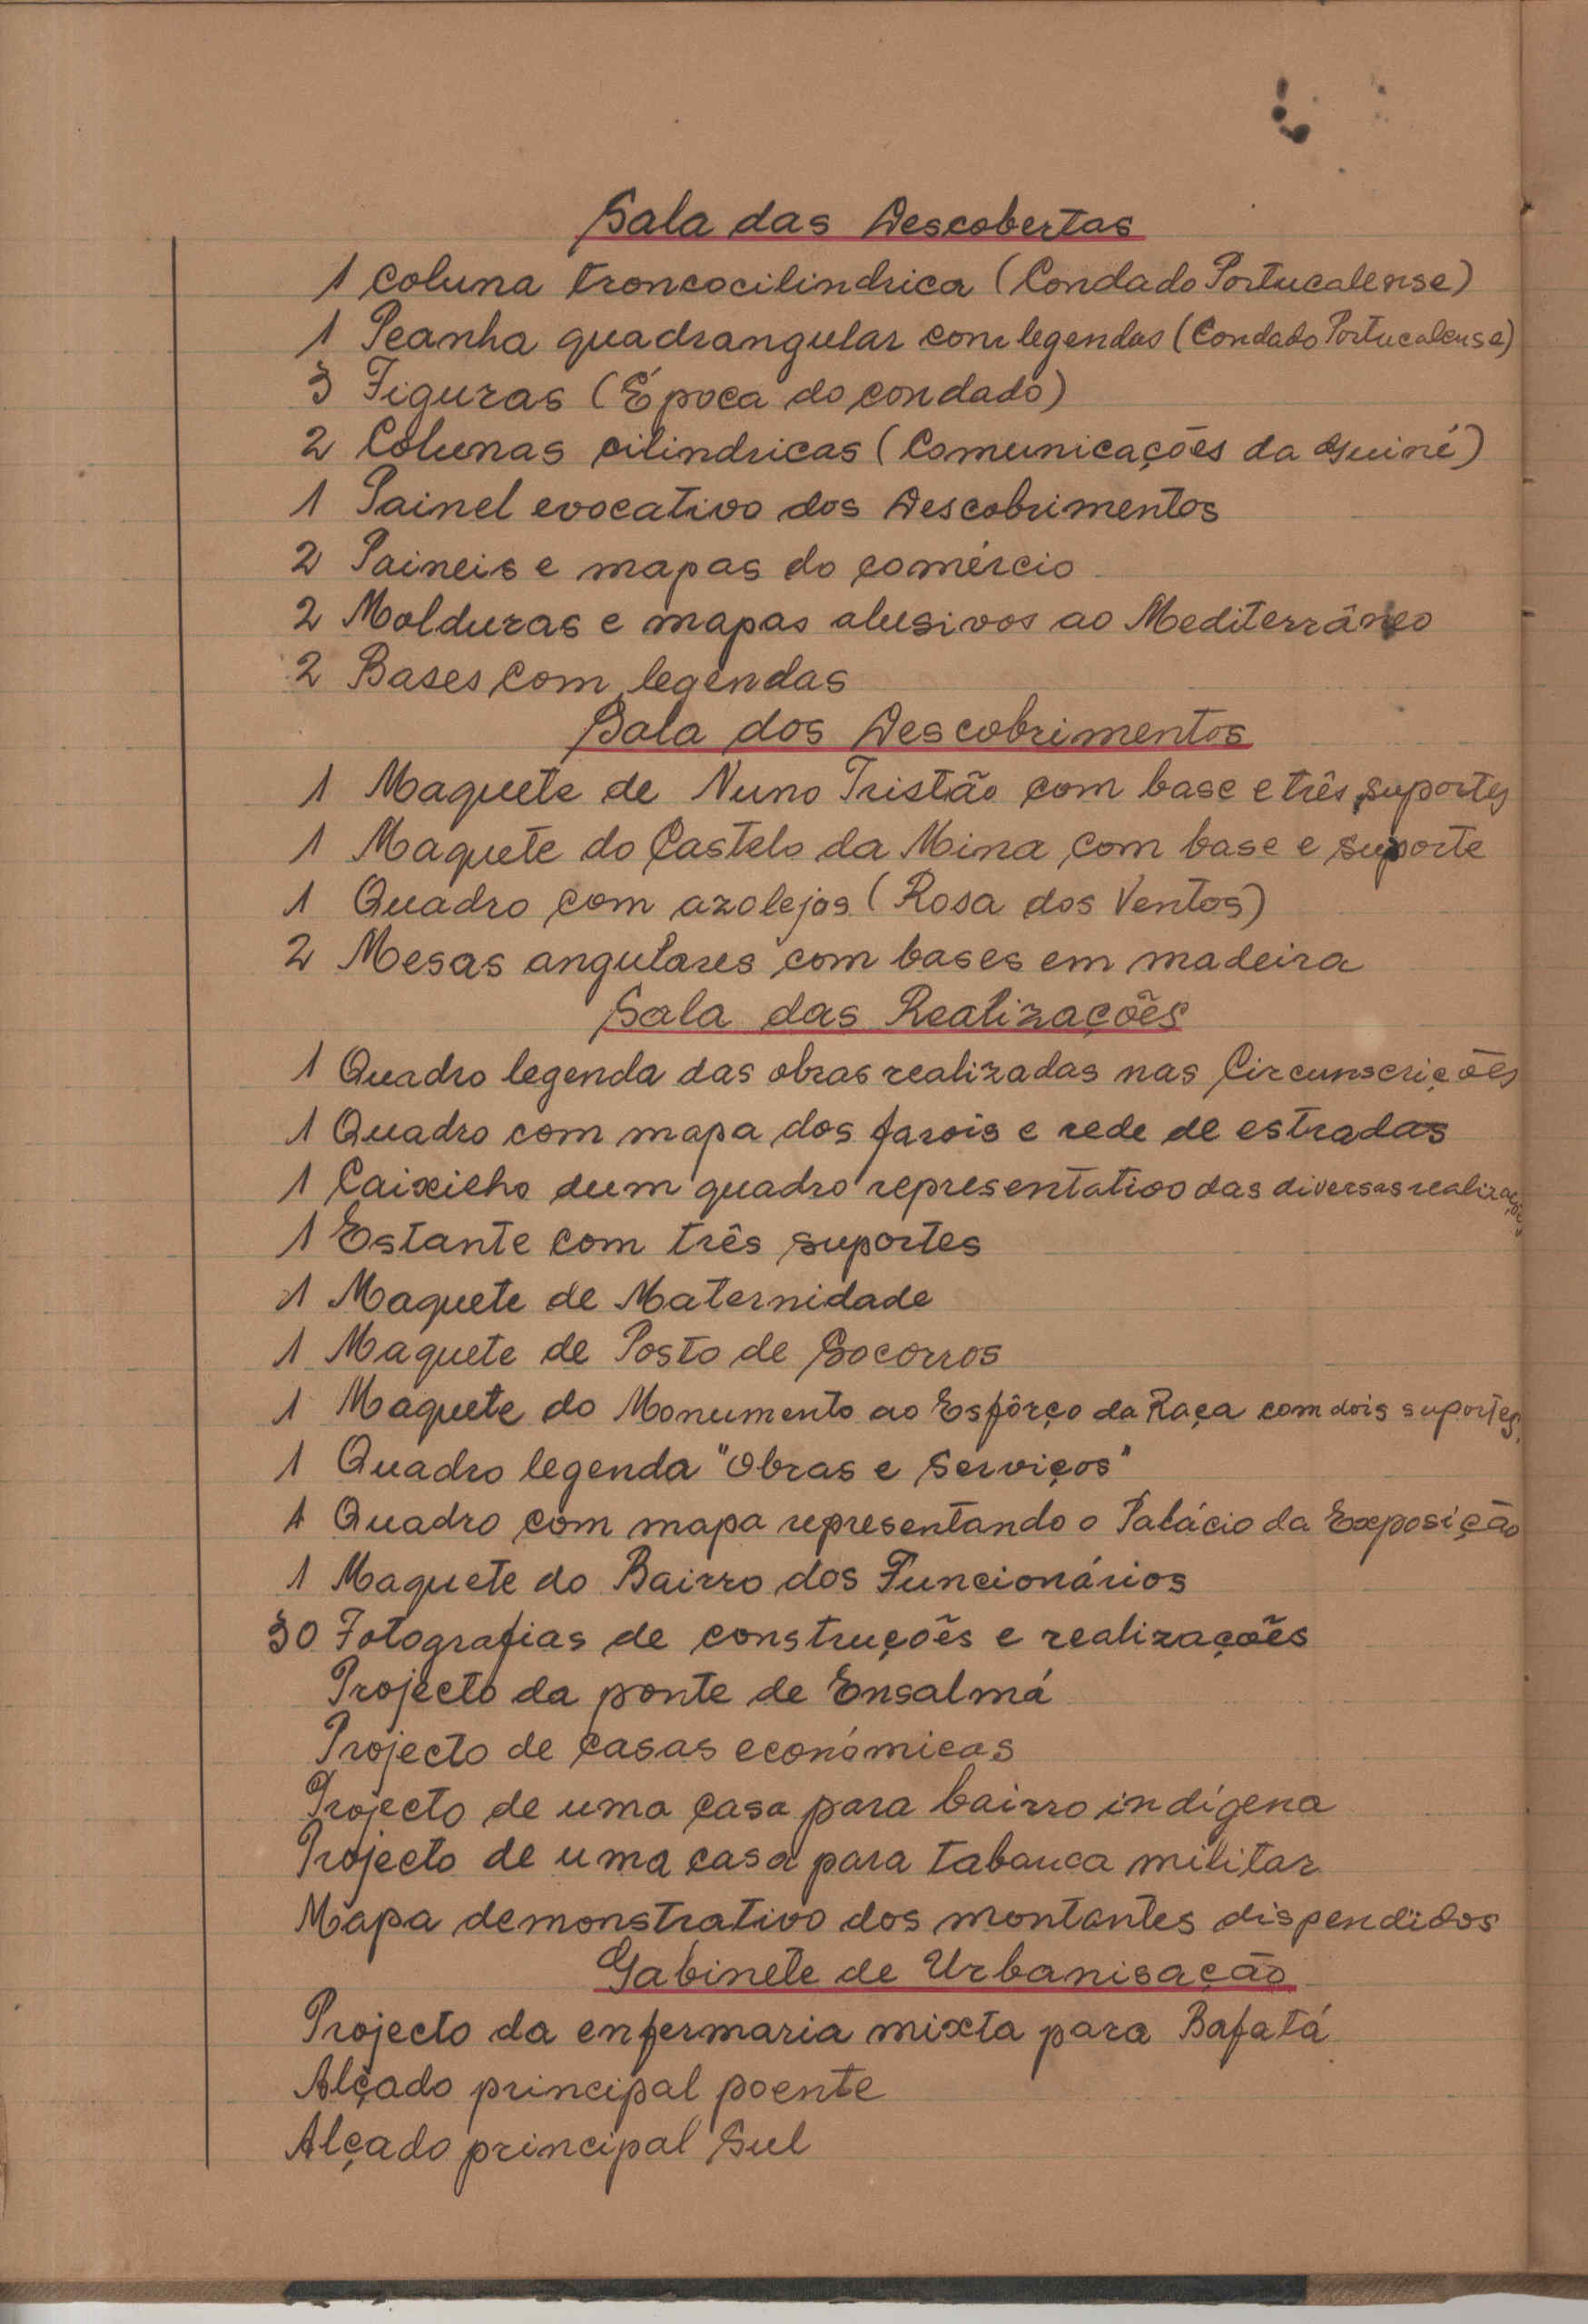 Sala das Descobertas
1 Coluna troncocilindrica (Condado Portucalense)
1 Peanha quadrangular com legendas (Condado Portucalense)
3 Figuras (Época do condado)
2 Colunas cilindricas (Comunicações da Guiné)
1 Painel evocativo dos Descobrimentos
2 Paineis e mapas do comércio
2 Molduras e mapas alusivos ao Mediterrâneo
2 Bases com legendas
Sala dos Descobrimentos
1 Maquete de Nuno Tristão com base e três suportes
1 Maquete do Castelo da Mina com base e suporte
1 Quadro com azolejos (Rosa dos Ventos)
2 Mesas angulares com bases em madeira
Sala das Realizações
1 Quadro legenda das obras realizadas nas Circunscrições
1 Quadro com mapa dos farois e rede de estradas
1 Caixilho dum quadro representativo das diversas realizações
1 Estante com três suportes
1 Maquete de Maternidade
1 Maquete de Posto de Socorros
1 Maquete do Monumento ao Esfôrço da Raça com dois suportes
1 Quadro legenda "Obras e Serviços"
1 Quadro com mapa representando o Palácio da Exposição
1 Maquete do Bairro dos Funcionários
30 Fotografias de construções e realizações
Projecto da ponte de Ensalmá
Projecto de casas económicas
Projecto de uma casa para bairro indígena
Projecto de uma casa para tabanca militar
Mapa demonstrativo dos montantes dispendidos
Gabinete de Urbanisação
Projecto da enfermaria mixta para Bafatá
Alçado principal poente
Alçado principal Sul